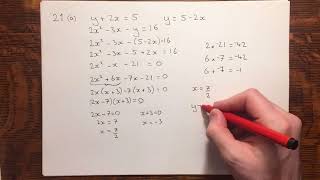 21 (a) y + 2x = 5 y = 5 - 2x
2x² - 3x - y = 16
2x² - 3x - (5 - 2x) = 16
2x² - 3x - 5 + 2x = 16
2x² - x - 21 = 0
2x² + 6x - 7x - 21 = 0
2x(x + 3) - 7(x + 3) = 0
(2x - 7)(x + 3) = 0
2x - 7 = 0 x + 3 = 0
2x = 7 x = -3
x = 7/2
2 × -21 = -42
6 × -7 = -42
6 + -7 = -1
x = 7/2
y =